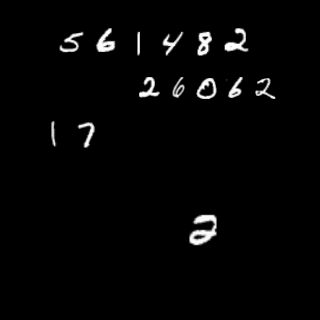 561482
26062
17
2